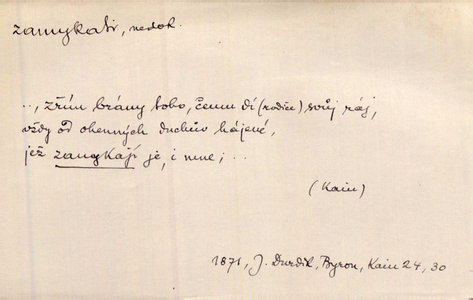 zamykati, nedok.
.., zřím brány toho, čemu dí (rodiče) svůj ráj,
vždy od ohenných duchův hájené,
jež zamykají je, i mne; ..
(Kain)
1871, J. Durdík, Byron, Kain 24, 30